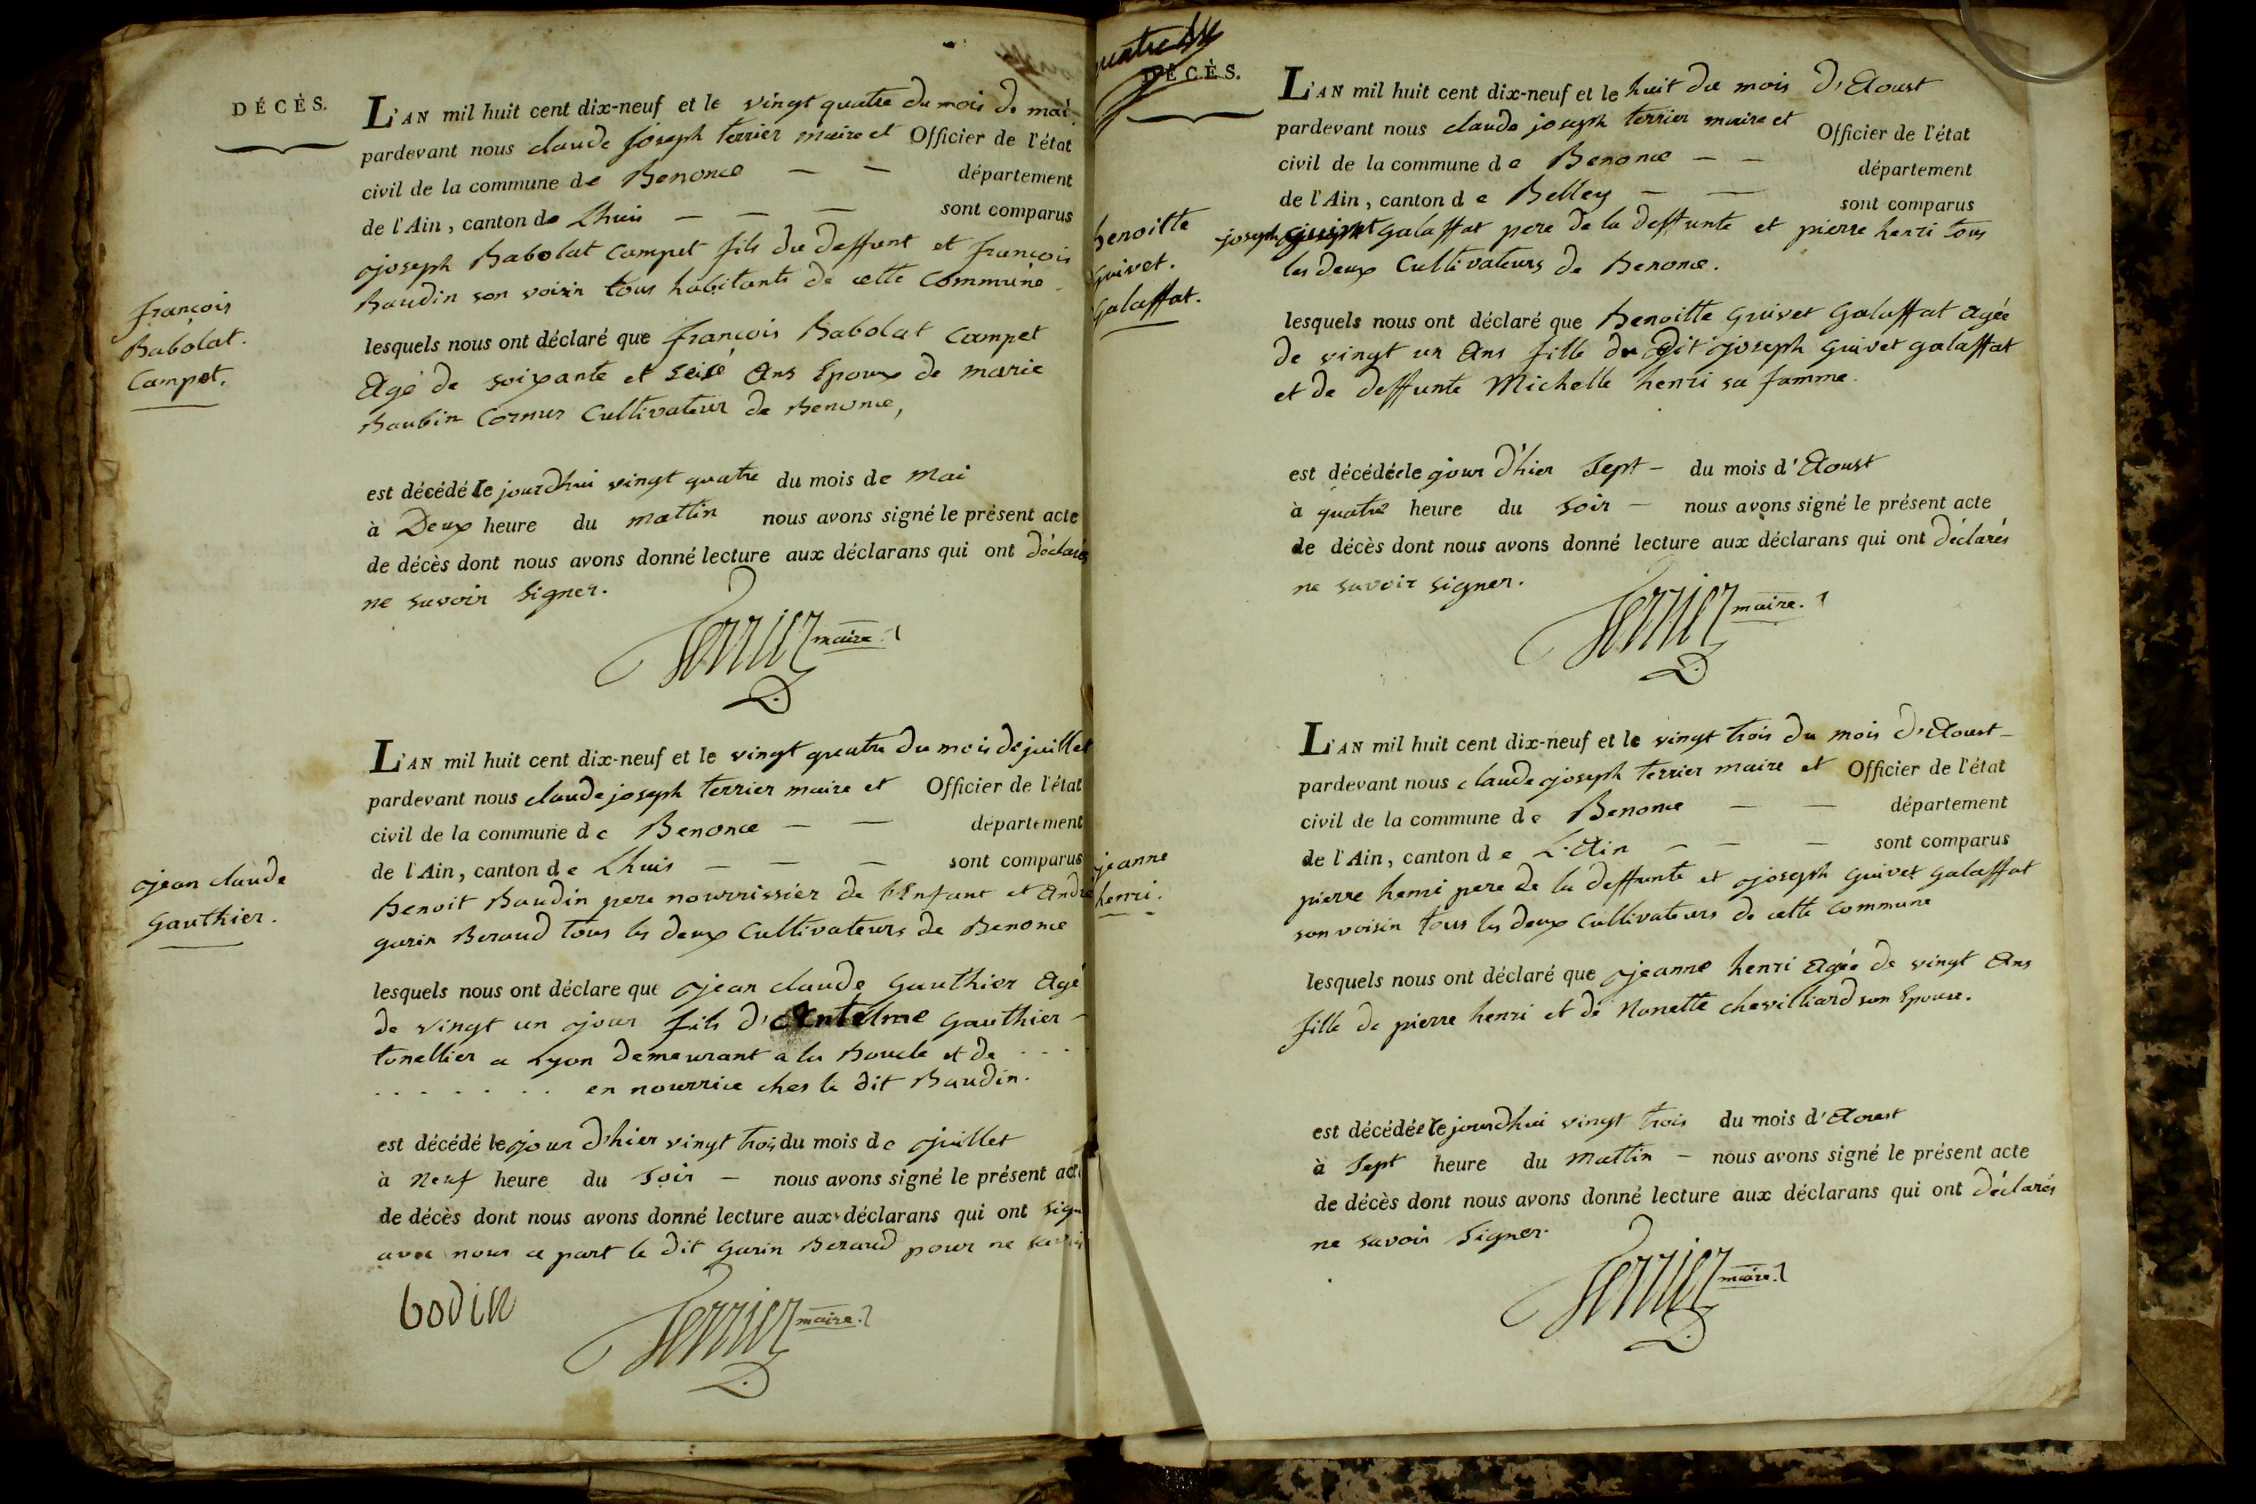 DÉCÈS.
L'AN mil huit cent dix-neuf et le vingt quatre du mois de mai
pardevant nous claude joseph terrier maire et Officier de l'état
civil de la commune de Benonce — — département
de l'Ain, canton de Lhuis — — — sont comparus
joseph Babolat Campet fils du deffunt et françois
Baudin son voisin tous habitants de cette Commune
françois
Babolat.
Campet.
lesquels nous ont déclaré que françois Babolat Campet
Agé de soixante et seisé Ans Epoux de marie
Baubin Cornus Cultivateur de Benonce,
est décédé le jourdhui vingt quatre du mois de Mai
à Deux heure du mattin nous avons signé le présent acte
de décès dont nous avons donné lecture aux déclarans qui ont déclarés
ne savoir signer.
Terrier maire.
L'AN mil huit cent dix-neuf et le vingt quatre du mois de juillet
pardevant nous claude joseph terrier maire et Officier de l'état
civil de la commune de Benonce — — département
de l'Ain, canton de Lhuis — — — sont comparus
Benoit Baudin pere nourrissier de l'Enfant et André
gurin Beraud tous les deux Cultivateurs de Benonce
jean claude
Gauthier.
lesquels nous ont déclare que jean claude Gauthier Agé
de vingt un jour fils d'Antelme Gauthier
tonellier a Lyon demeurant a la Boucle et de . . .
. . . . . . . en nourrice ches le dit Baudin.
est décédé le jour d'hier vingt trois du mois de juillet
à neuf heure du soir — nous avons signé le présent acte
de décès dont nous avons donné lecture aux déclarans qui ont sign
avec nous a part le dit Gurin Beraud pour ne savoir
bodin
Terrier maire.
DÉCÈS.
L'AN mil huit cent dix-neuf et le huit du mois d'Aoust
pardevant nous claude joseph terrier maire et Officier de l'état
civil de la commune de Benonce — — département
de l'Ain, canton de Belley — — sont comparus
joseph guivet Galaffat pere de la deffunte et pierre henri tous
les deux Cultivateurs de Benonce.
benoitte
Guivet.
Galaffat.
lesquels nous ont déclaré que Benoitte Guivet Galaffat Agée
de vingt un Ans fille du dit joseph Guivet galaffat
et de deffunte Michelle henri sa famme.
est décédée le jour d'hier Sept — du mois d'Aoust
à quatre heure du soir — nous avons signé le présent acte
de décès dont nous avons donné lecture aux déclarans qui ont déclarés
ne savoir signer.
Terrier maire.
L'AN mil huit cent dix-neuf et le vingt trois du mois d'Aoust —
pardevant nous claude joseph terrier maire et Officier de l'état
civil de la commune de Benonce — — département
de l'Ain, canton de L'Ain — — — sont comparus
pierre henri pere de la deffunte et joseph Guivet galaffat
son voisin tous les deux Cultivateurs de cette Commune
jeanne
henri.
lesquels nous ont déclaré que jeanne henri Agée de vingt Ans
fille de pierre henri et de Nonette chevilliard son Epouse.
est décédée le jourdhui vingt trois du mois d'Aoust
à Sept heure du mattin — nous avons signé le présent acte
de décès dont nous avons donné lecture aux déclarans qui ont déclarés
ne savoir signer.
Terrier maire.